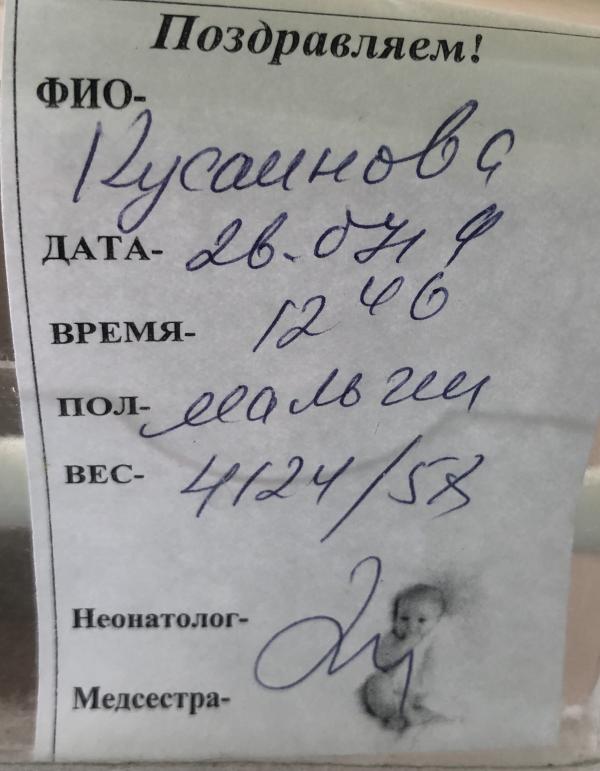 Поздравляем!
ФИО-
Кусаинова
ДАТА-
ВРЕМЯ- 12 46
ПОЛ- мальчик
ВЕС- 4124/58
Неонатолог-
Медсестра-